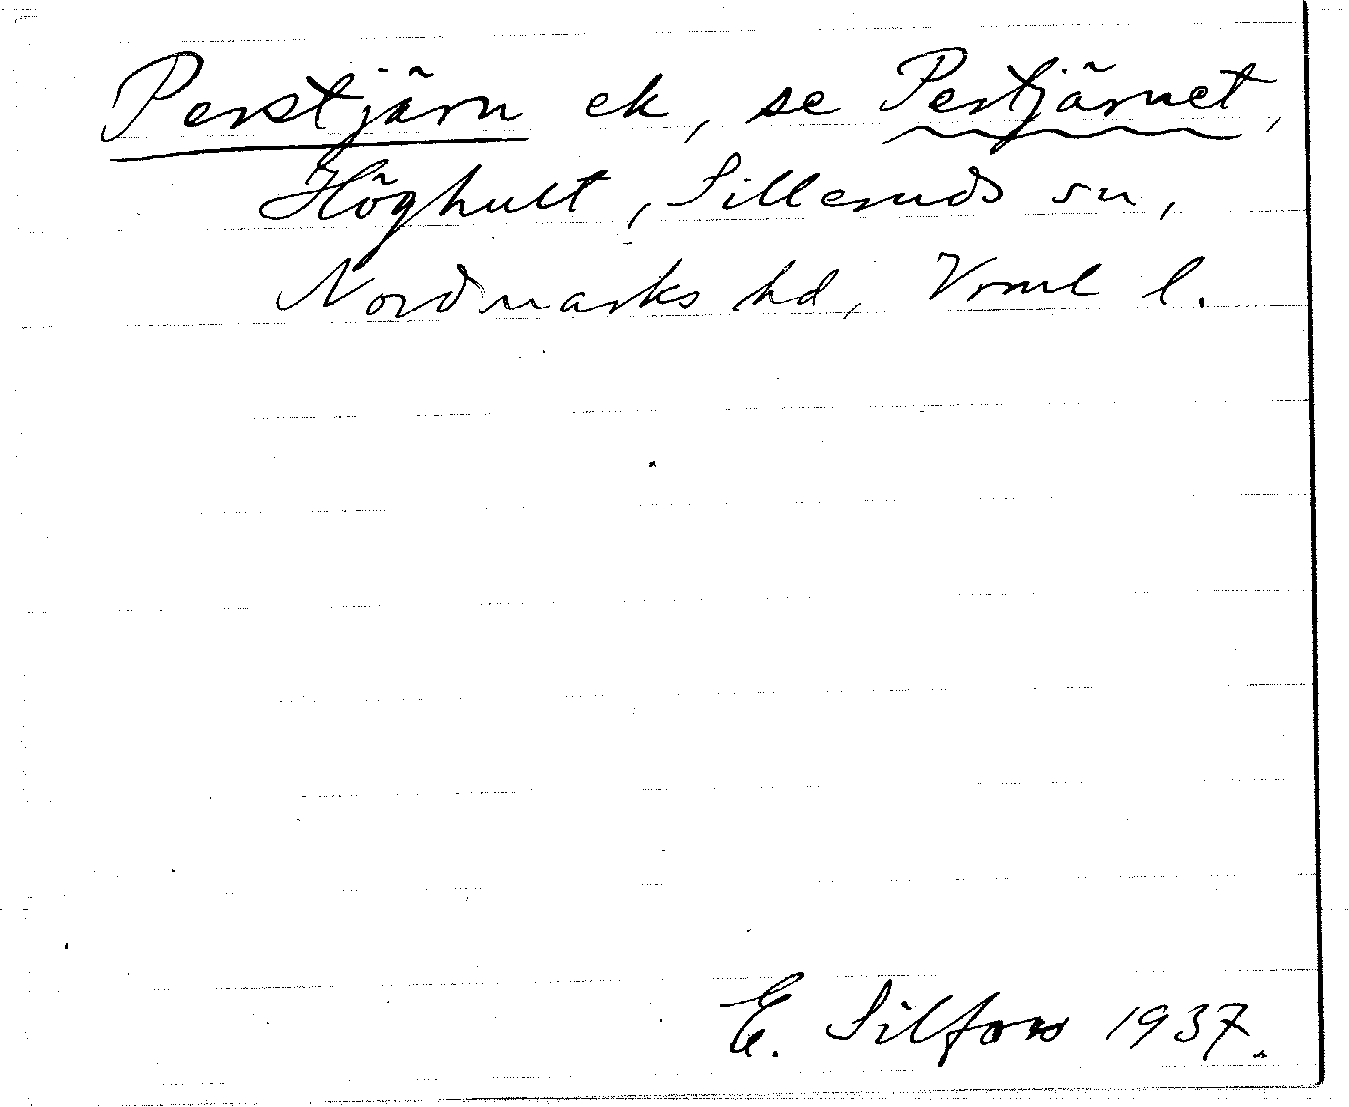 Perstjärn ek, se Pertjärnet,
Höghult, Silleruds sn,
Nordmarks hd, Vrml l.
E. Silfors 1937.